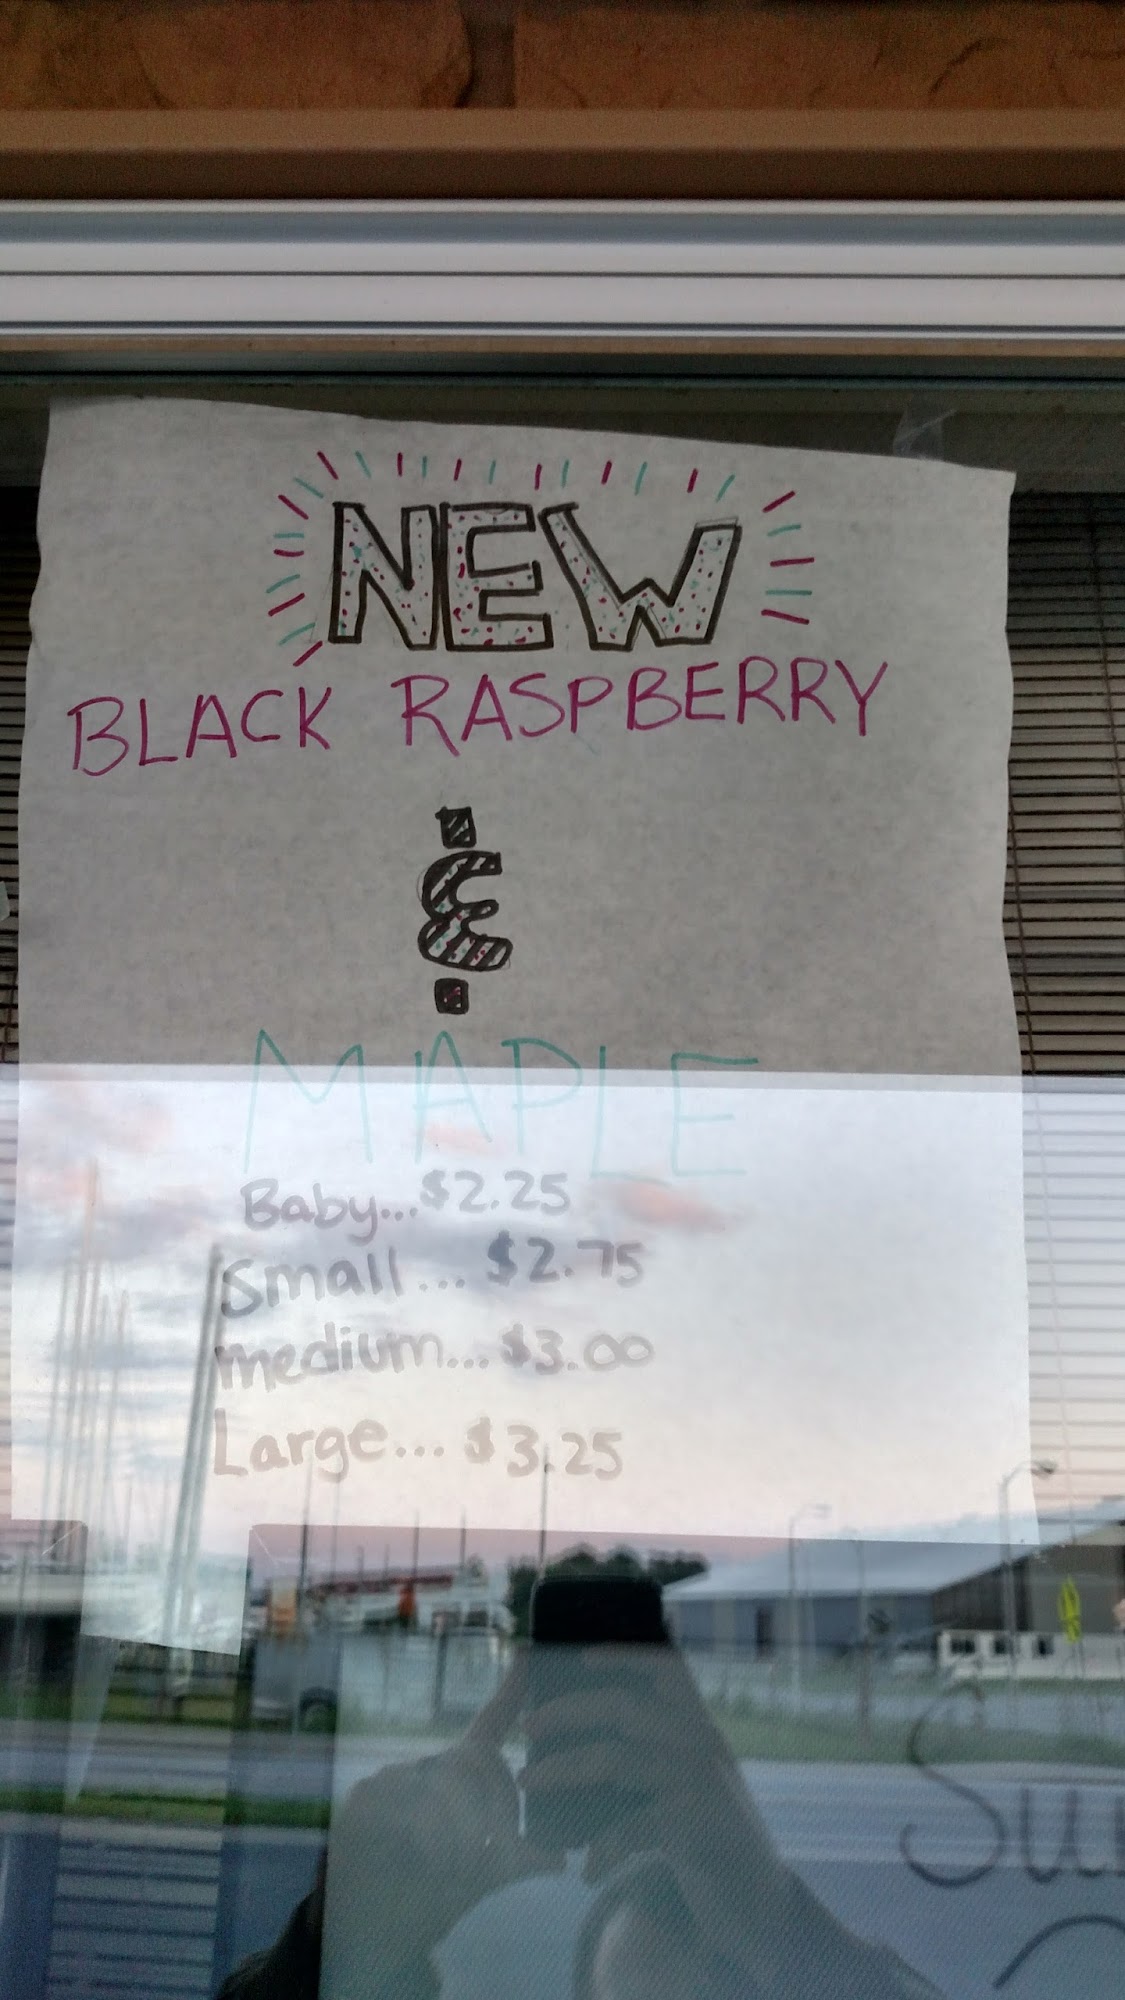 NEW
BLACK RASPBERRY
&
MAPLE
Baby...$2.25
Small...$2.75
medium...$3.00
Large...$3.25